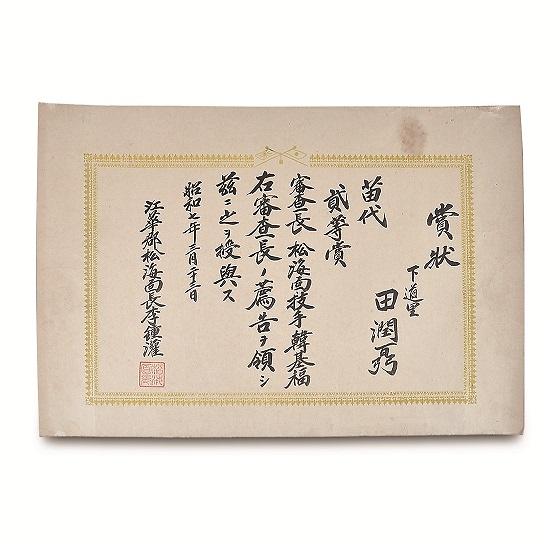 賞狀
下道里
田潤
苗代
貳等賞
審査長 松海面技手 韓基福
右審査長ノ薦告ヲ領シ
玆ニ之ヲ授與ス
昭和七年三月二十三日
江華郡松海面長李鍾灌